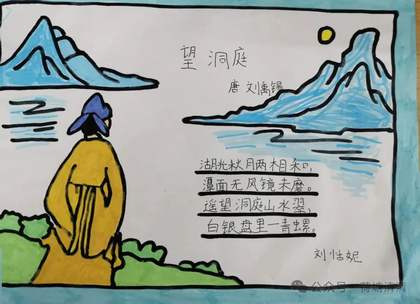 望洞庭
唐 刘禹锡
湖光秋月两相和，
潭面无风镜未磨。
遥望洞庭山水翠，
白银盘里一青螺。
刘恬妮
公众号